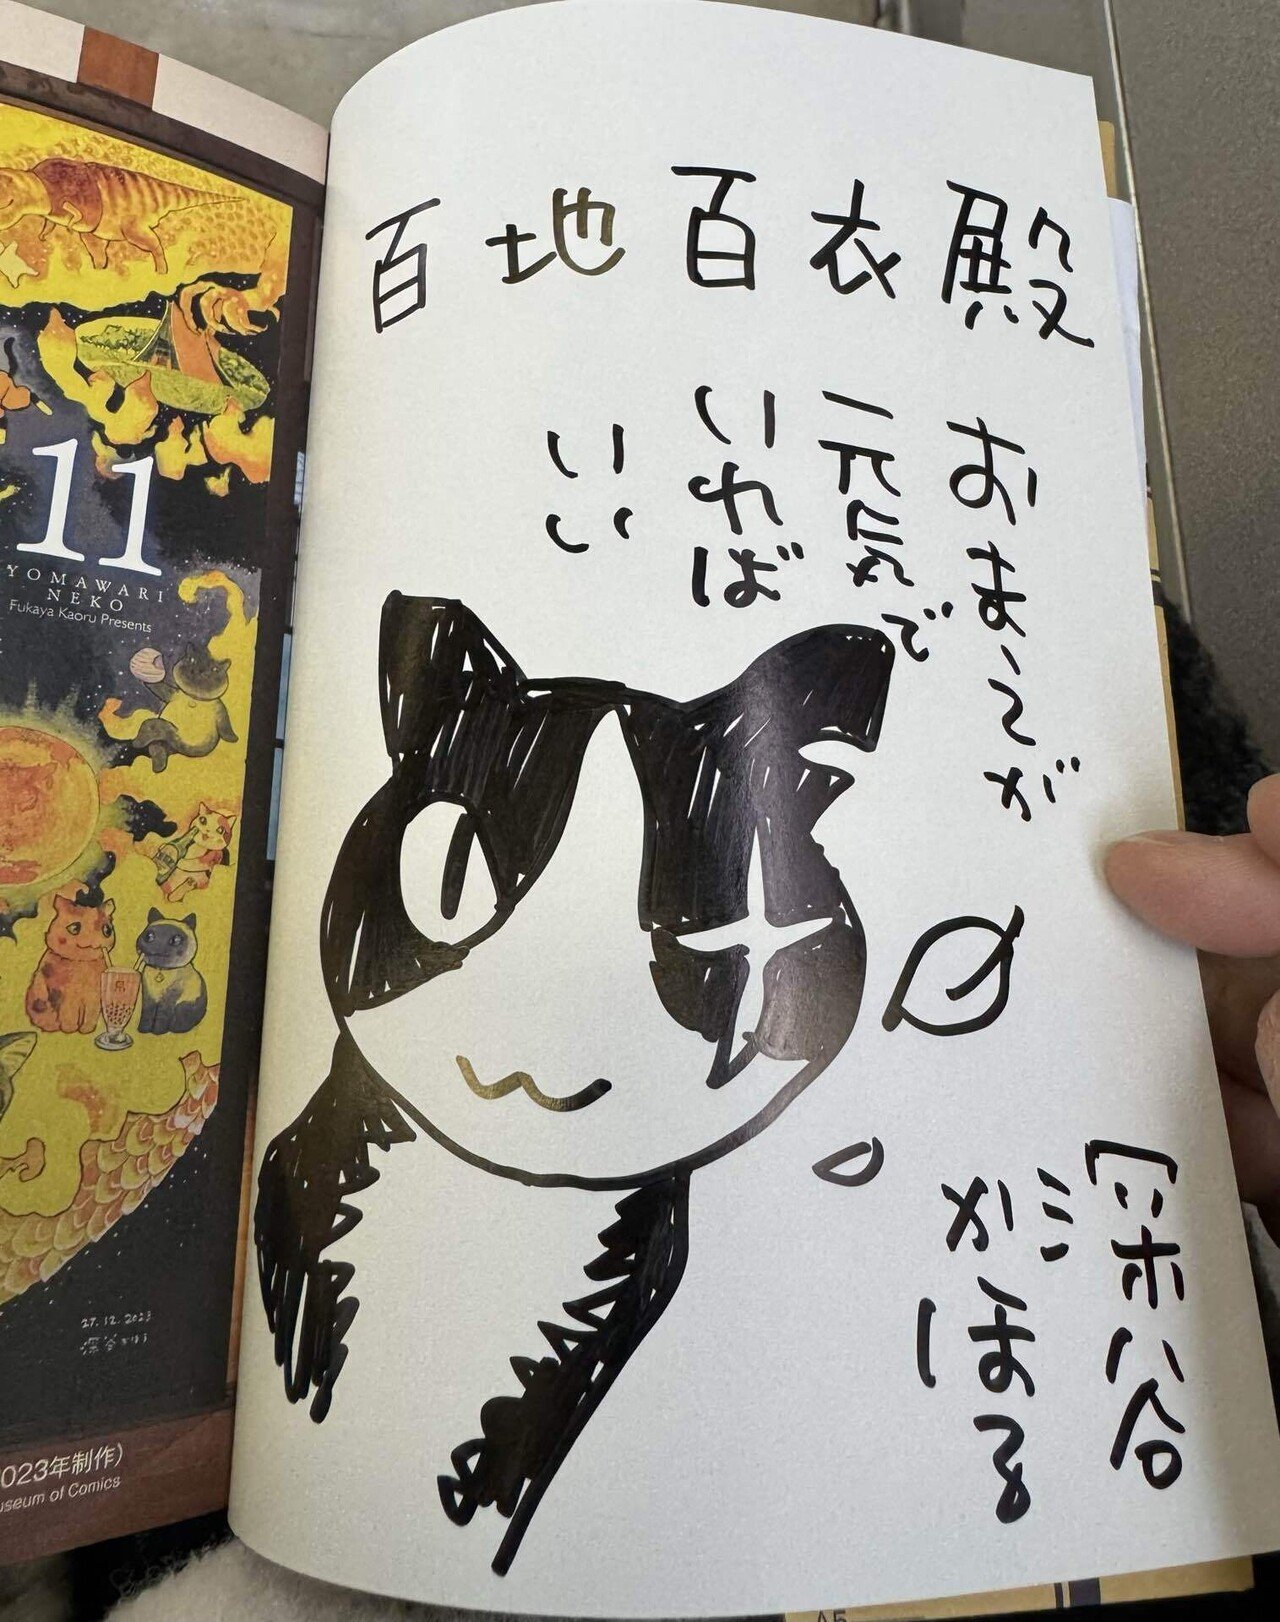 百地百衣殿
おまえが
元気で
いれば
いい
深谷
かほる
11
YOMAWARI
NEKO
Fukaya Kaoru Presents
27.12.2023
深谷かほる
023年制作)
useum of Comics
A5